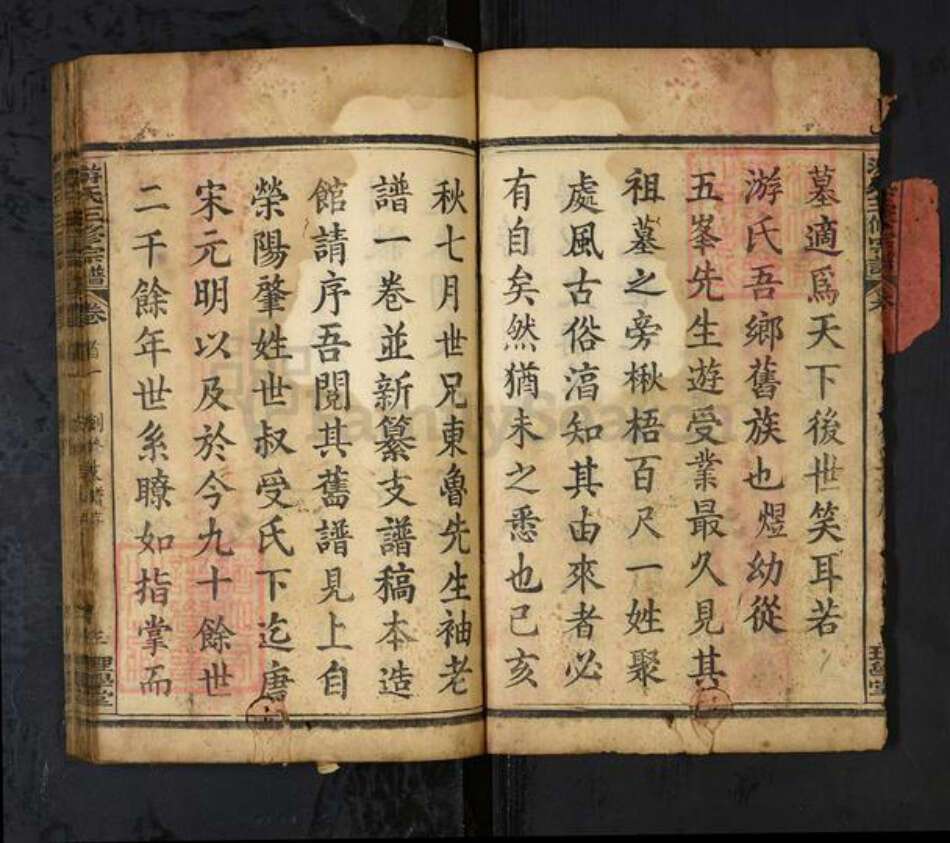 墓適爲天下後世笑耳若
游氏吾鄉舊族也煜幼從
五峯先生遊受業最久見其
祖墓之旁楸梧百尺一姓聚
處風古俗湻知其由來者必
有自矣然猶未之悉也己亥
秋七月世兄東魯先生袖老
譜一卷並新纂支譜稿本造
館請序吾閱其舊譜見上自
榮陽肇姓世叔受氏下迄唐
宋元明以及於今九十餘世
二千餘年世系瞭如指掌而
游氏三修宗譜 卷首一
理學堂
FamilySearch